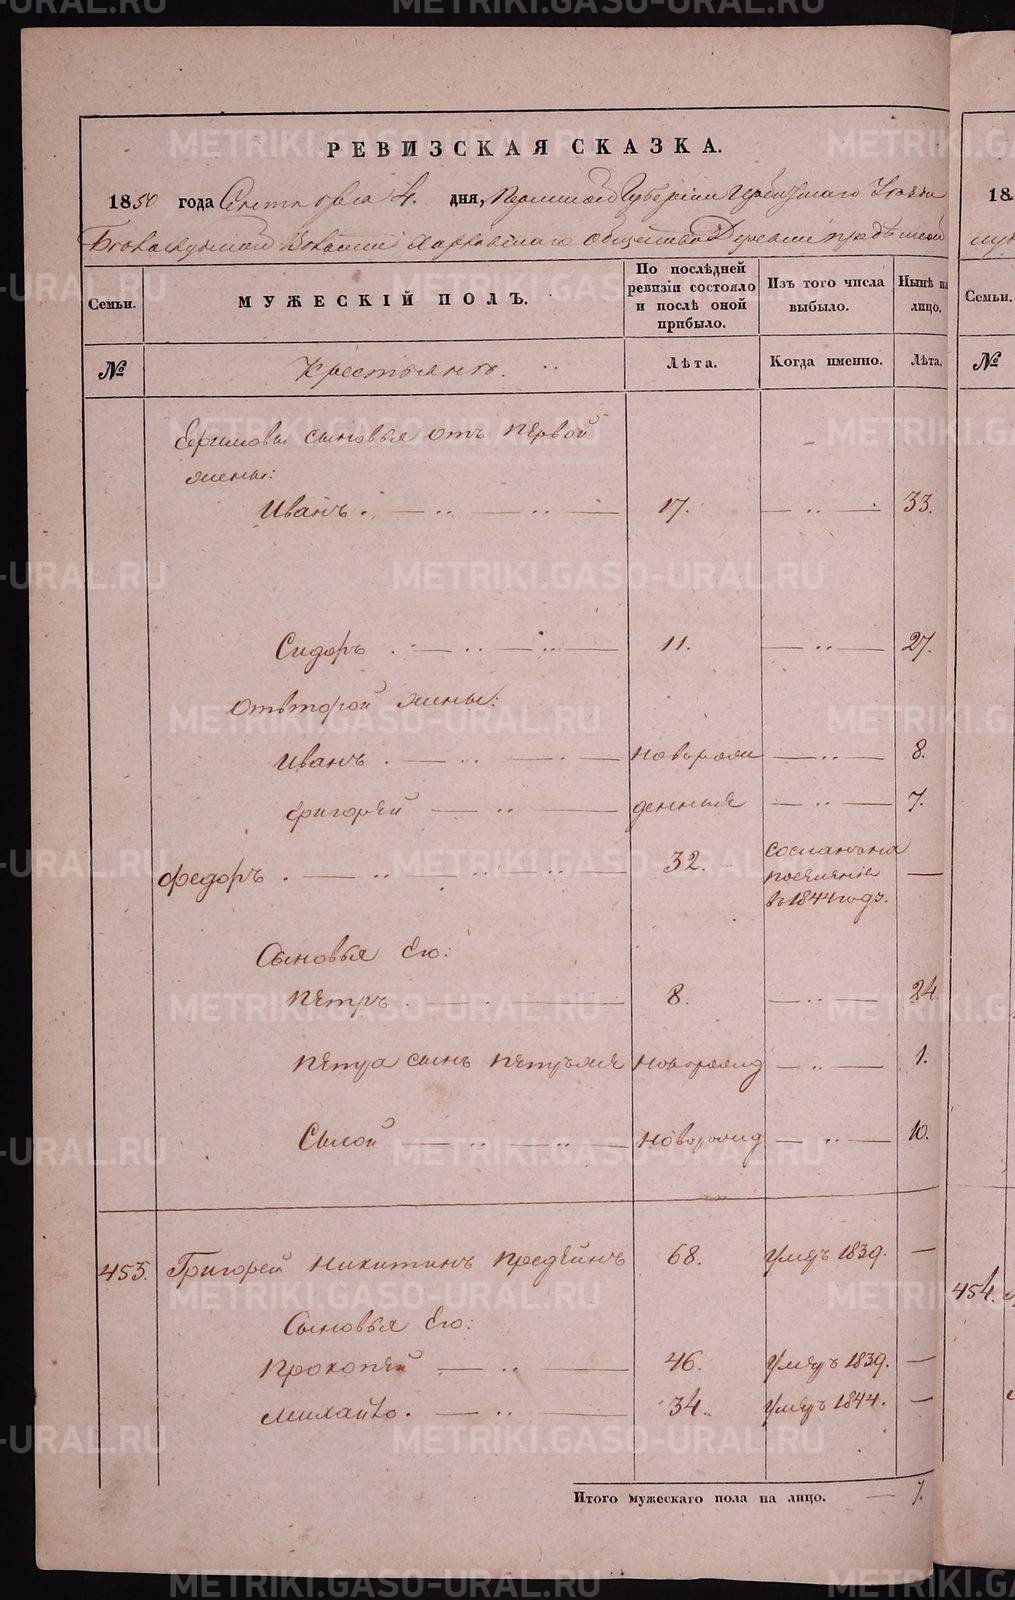 РЕВИЗСКАЯ СКАЗКА.
1850 года Сентября 4. дня, Пермской Губернии Ирбитскаго Уезда
Волости Харловскаго общества Деревни
Семьи. МУЖЕСКІЙ ПОЛЪ. По послѣдней ревизіи состояло и послѣ оной прибыло. Изъ того числа выбыло. Нынѣ на лицо.
№ Крестьянъ. Лѣта. Когда именно. Лѣта.
Ефимовы сыновья отъ первой
жены:
Иванъ. 17. 33.
Сидоръ 11. 27.
Отвторой жены:
Иванъ новорож 8.
Григорей денныя 7.
Федоръ 32. сосланъ на поселеніе въ 1844 годъ.
Сыновья Его:
Петръ 8. 24
Петра сынъ новорожд 1.
Сысой новорожд 10.
453. Григорей Никитинъ Предеинъ 68. Умеръ 1839.
Сыновья Его:
Прокопей 46. Умеръ 1839.
Михайло. 34. Умеръ 1844.
Итого мужескаго пола на лицо. 7.
18
Семьи.
№
454.
METRIKI.GASO-URAL.RU